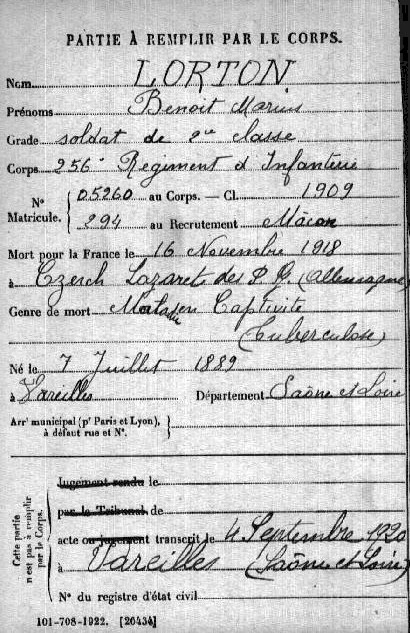 PARTIE À REMPLIR PAR LE CORPS.
Nom LORTON
Prénoms Benoit Marius
Grade soldat de 2me classe
Corps 256e Régiment d'Infanterie
N° Matricule. { 05260 au Corps. — Cl. 1909
294 au Recrutement Mâcon
Mort pour la France le 16 Novembre 1918
à Czersk Lazaret des P. G. (Allemagne)
Genre de mort Maladie Captivité
(Tuberculose)
Né le 7 Juillet 1889
à Vareilles Département Saône et Loire
Arrt municipal (pr Paris et Lyon),
à défaut rue et N°.
Cette partie n'est pas à remplir par le Corps.
Jugement rendu le
par le Tribunal de
acte ou jugement transcrit le 4 Septembre 1920
à Vareilles (Saône et Loire)
N° du registre d'état civil
101-708-1922. [26434]